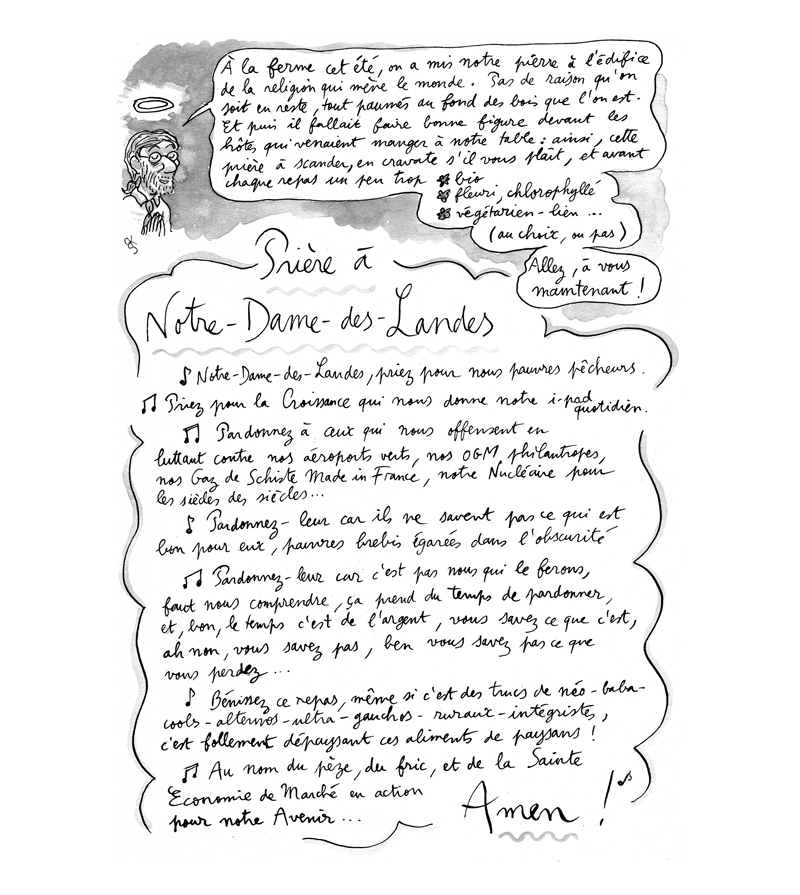 À la ferme cet été, on a mis notre pierre à l'édifice
de la religion qui mène le monde. Pas de raison qu'on
soit en reste, tout paumés au fond des bois que l'on est.
Et puis il fallait faire bonne figure devant les
hôtes qui venaient manger à notre table : ainsi, cette
prière à scander, en cravate s'il vous plaît, et avant
chaque repas un peu trop bio
fleuri, chlorophyllé
végétarien-lien ...
(au choix, ou pas)
Allez, à vous
maintenant !
Prière à
Notre-Dame-des-Landes
♪ Notre-Dame-des-Landes, priez pour nous pauvres pêcheurs.
♫ Priez pour la Croissance qui nous donne notre i-pad
quotidien.
♫ Pardonnez à ceux qui nous offensent en
luttant contre nos aéroports verts, nos OGM philantropes,
nos Gaz de Schiste Made in France, notre Nucléaire pour
les siècles des siècles...
♪ Pardonnez-leur car ils ne savent pas ce qui est
bon pour eux, pauvres brebis égarées dans l'obscurité
♫ Pardonnez-leur car c'est pas nous qui le ferons,
faut nous comprendre, ça prend du temps de pardonner,
et, bon, le temps c'est de l'argent, vous savez ce que c'est,
ah non, vous savez pas, ben vous savez pas ce que
vous perdez ...
♪ Bénissez ce repas, même si c'est des trucs de néo-baba-
cools-alternos-ultra-gauchos-ruraux-intégristes,
c'est follement dépaysant ces aliments de paysans !
♫ Au nom du pèze, du fric, et de la Sainte
Economie de Marché en action
pour notre Avenir ...
Amen ! ♪